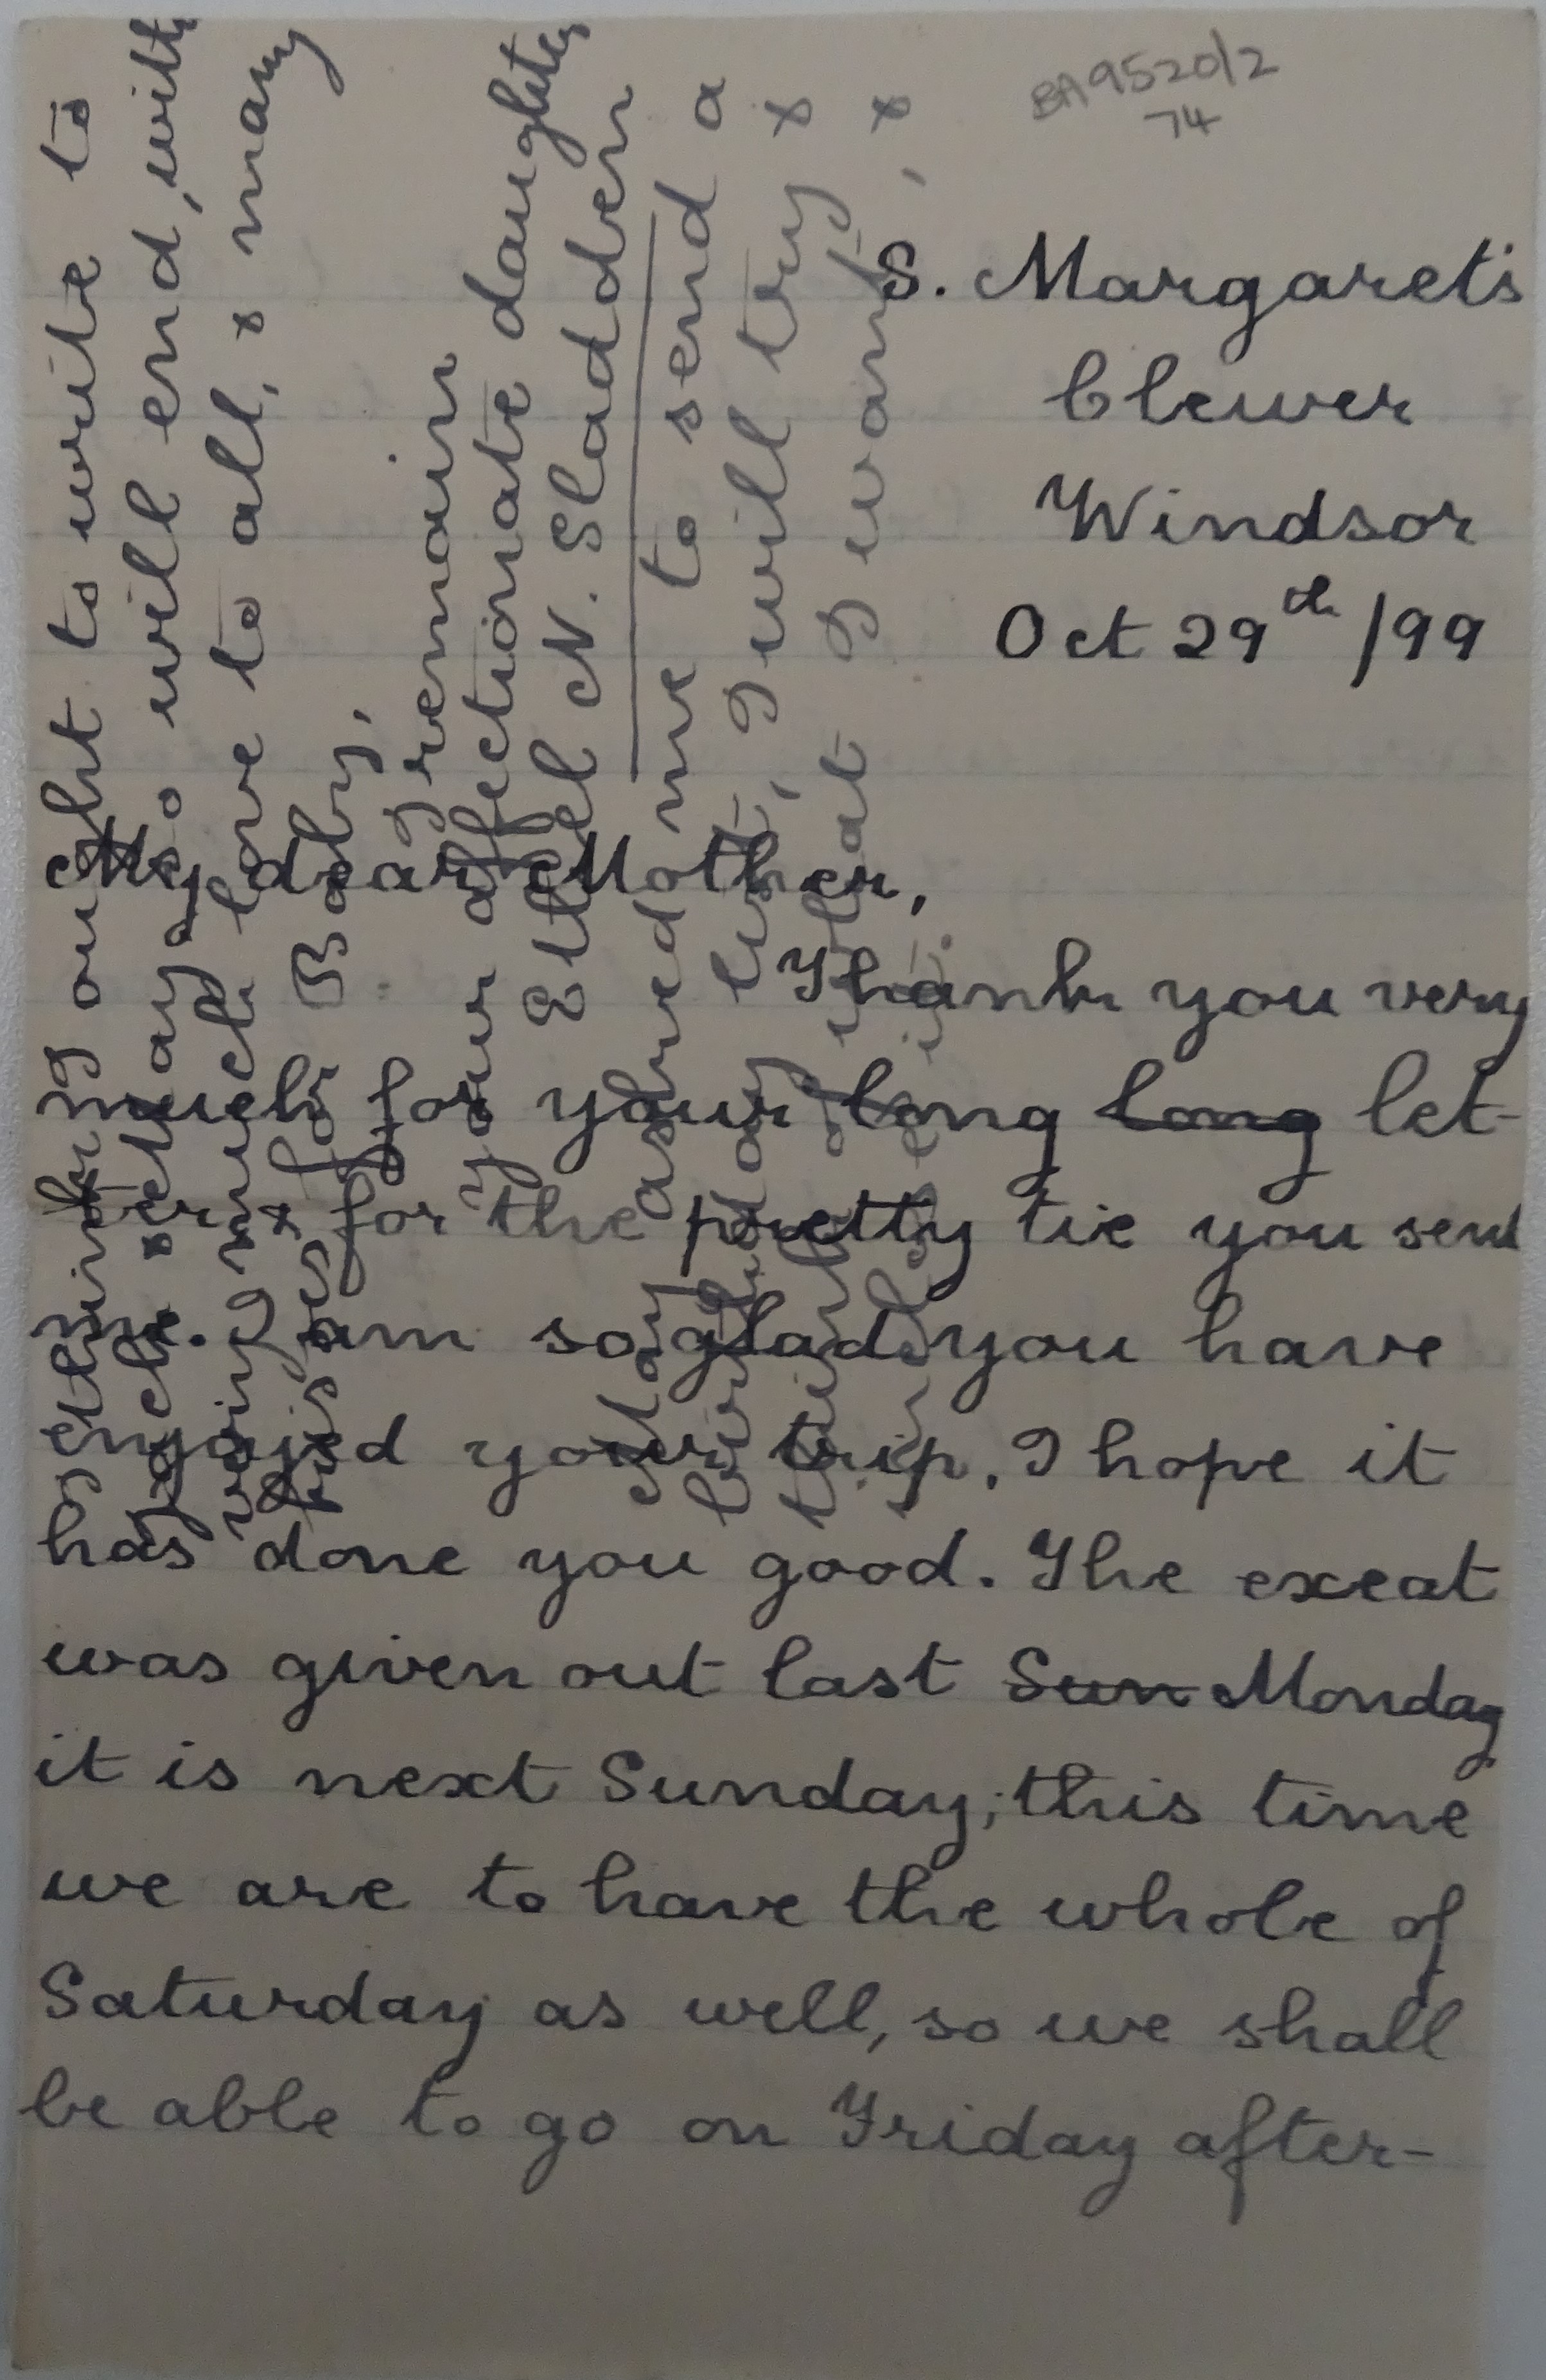 BA9520/2
74
S. Margaret's
Clewer
Windsor
Oct 29th /99
My dear Mother,
Thank you very
much for your long long let-
ter & for the pretty tie you sent
me. I am so glad you have
enjoyed your trip. I hope it
has done you good. The exeat
was given out last Sun Monday
it is next Sunday; this time
we are to have the whole of
Saturday as well, so we shall
be able to go on Friday after-
I think I ought to write to
& May so will end, with
very much love to all, & many
kisses for Baby,
I remain
your affectionate daughter
Ethel N. Sladden
May asked me to send a
birthday list, I will try &
think of what I want, &
send it.